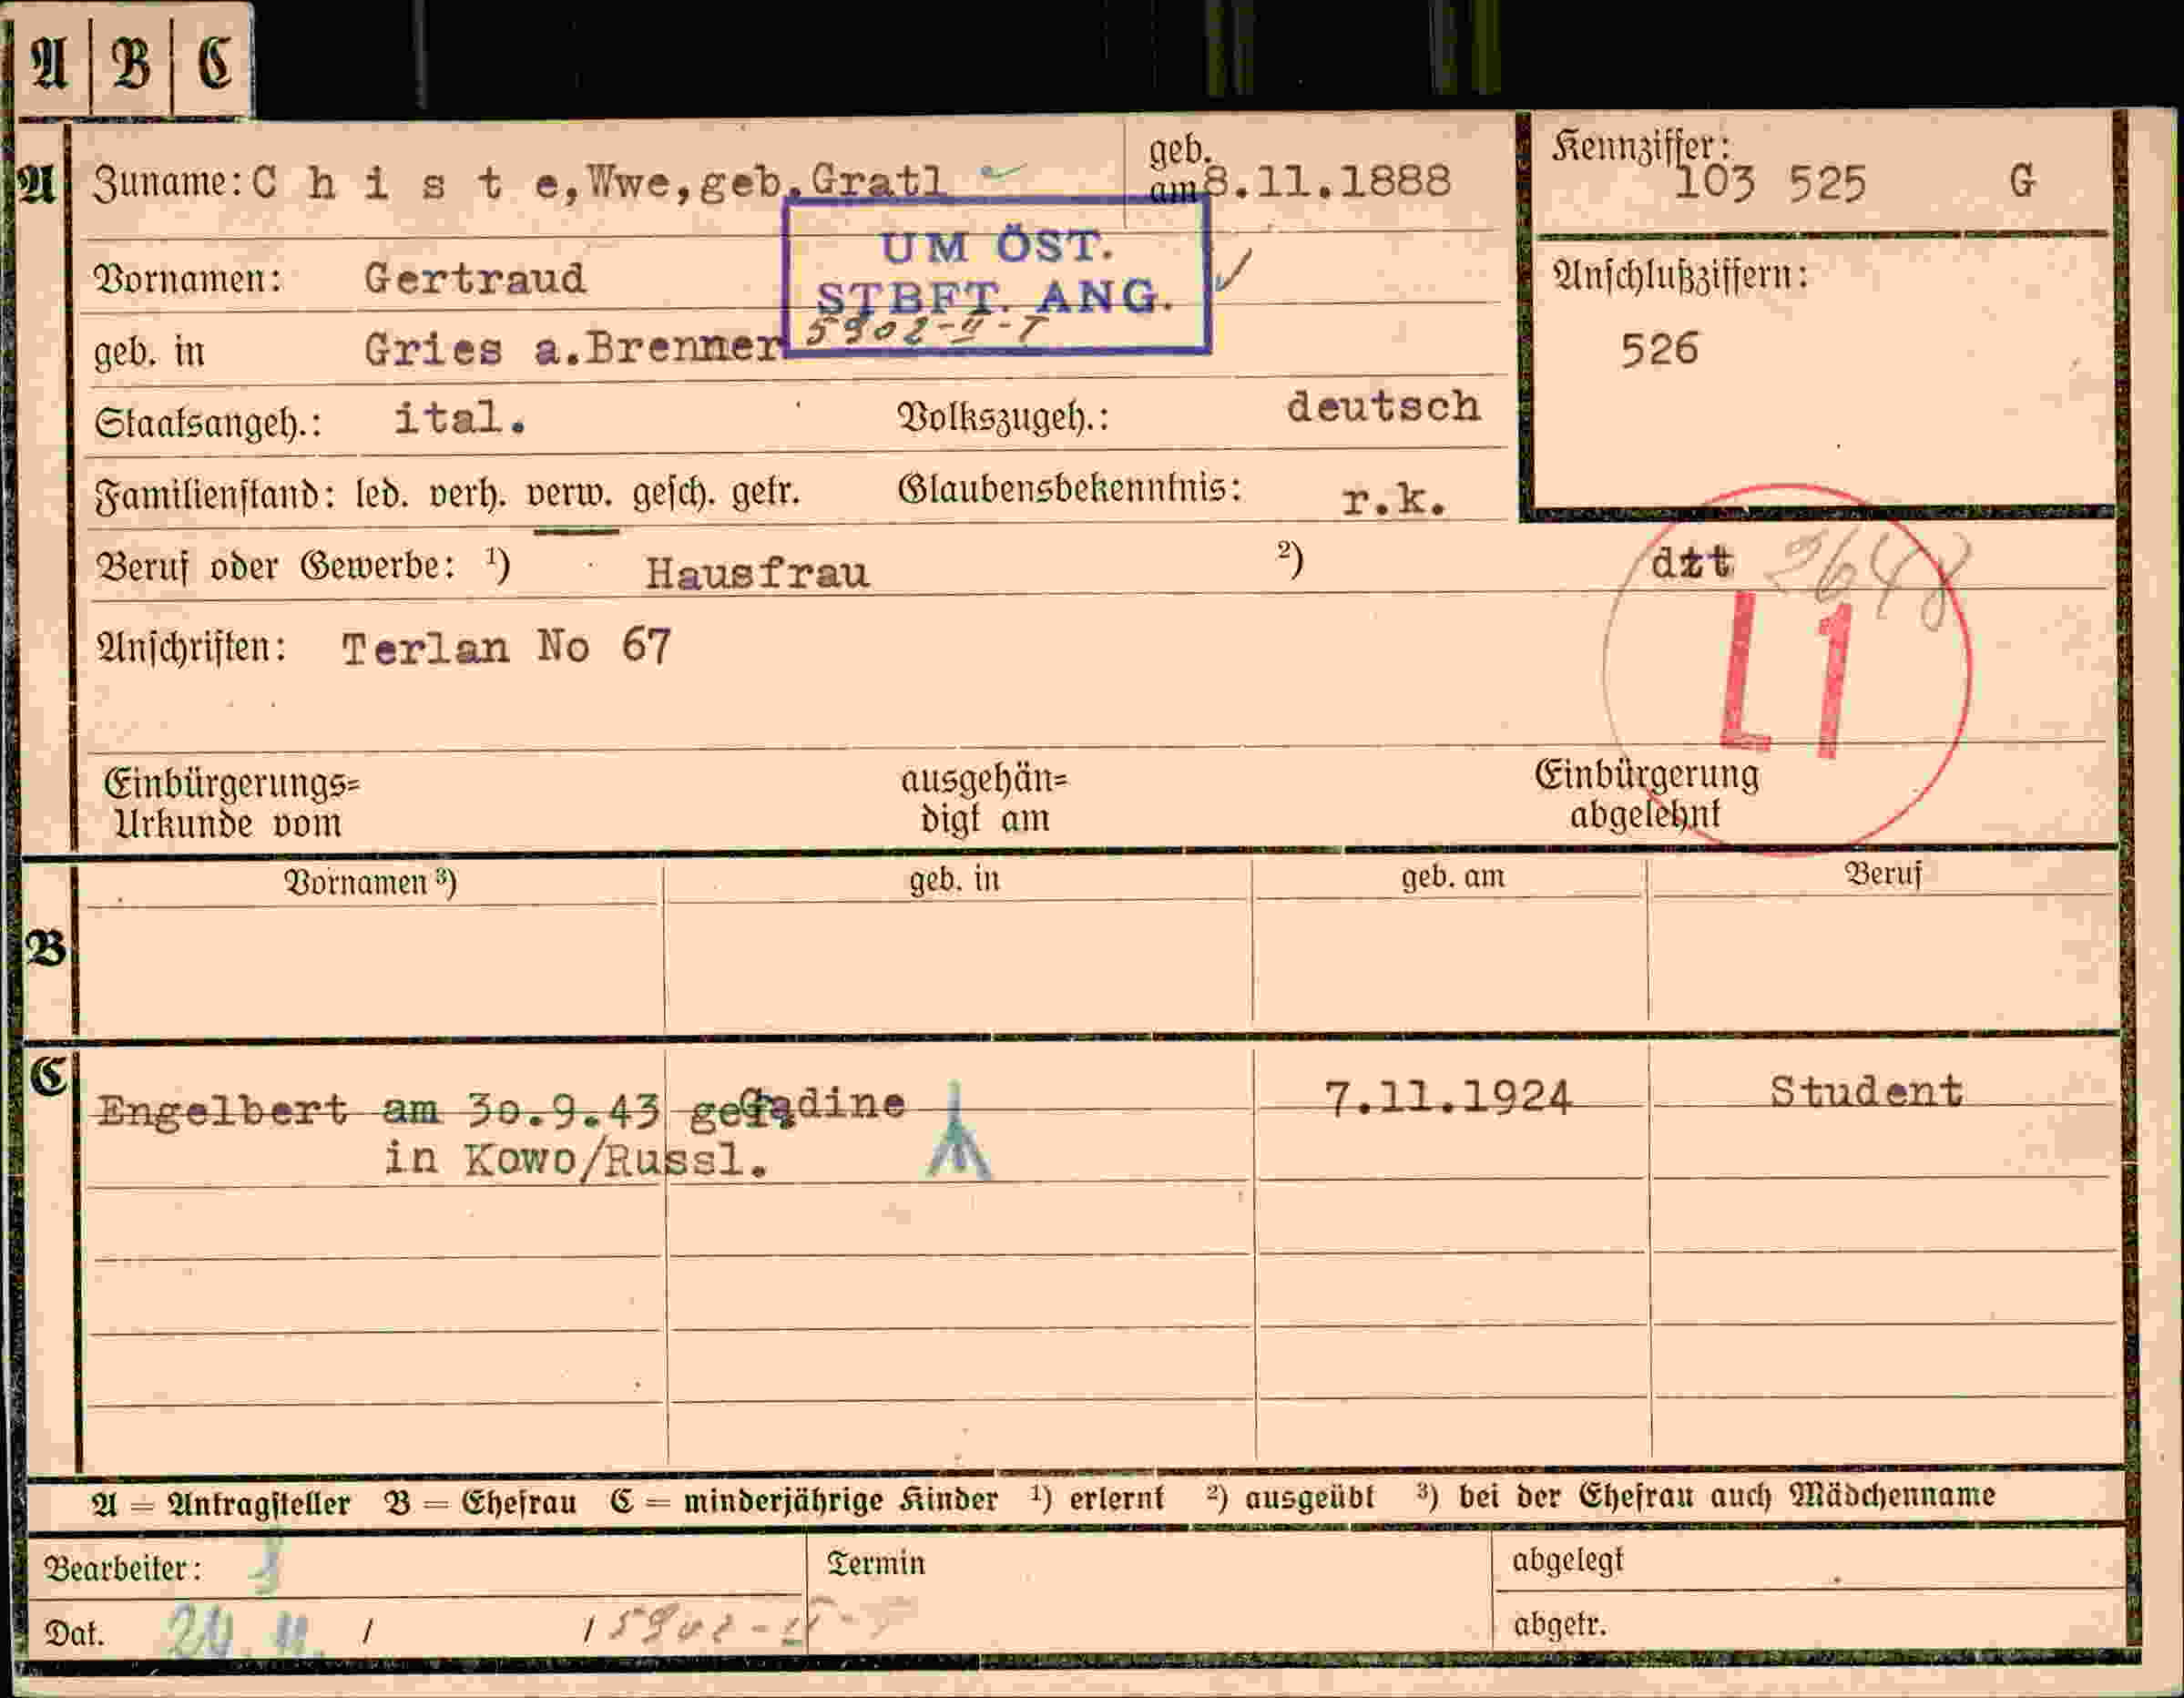 A B C
A Zuname: Chiste, Wwe, geb. Gratl geb. am 8.11.1888 Kennziffer: 103 525 G
UM ÖST.
STBFT. ANG.
5902-II-T
Vornamen: Gertraud
Anschlußziffern:
geb. in Gries a.Brenner
526
Staatsangeh.: ital. Volkszugeh.: deutsch
Familienstand: led. verh. verw. gesch. getr. Glaubensbekenntnis: r.k.
Beruf oder Gewerbe: 1) Hausfrau 2) dzt
L1
Anschriften: Terlan No 67
Einbürgerungs= ausgehän= Einbürgerung
Urkunde vom digt am abgelehnt
Vornamen 3) geb. in geb. am Beruf
B
C
Engelbert am 30.9.43 gef. Gadine 7.11.1924 Student
in Kowo/Russl.
A = Antragsteller B = Ehefrau C = minderjährige Kinder 1) erlernt 2) ausgeübt 3) bei der Ehefrau auch Mädchenname
Bearbeiter: Termin abgelegt
Dat. / / 5902-II-T abgetr.